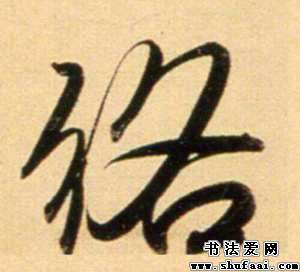 络
书法爱网
www.shufaai.com